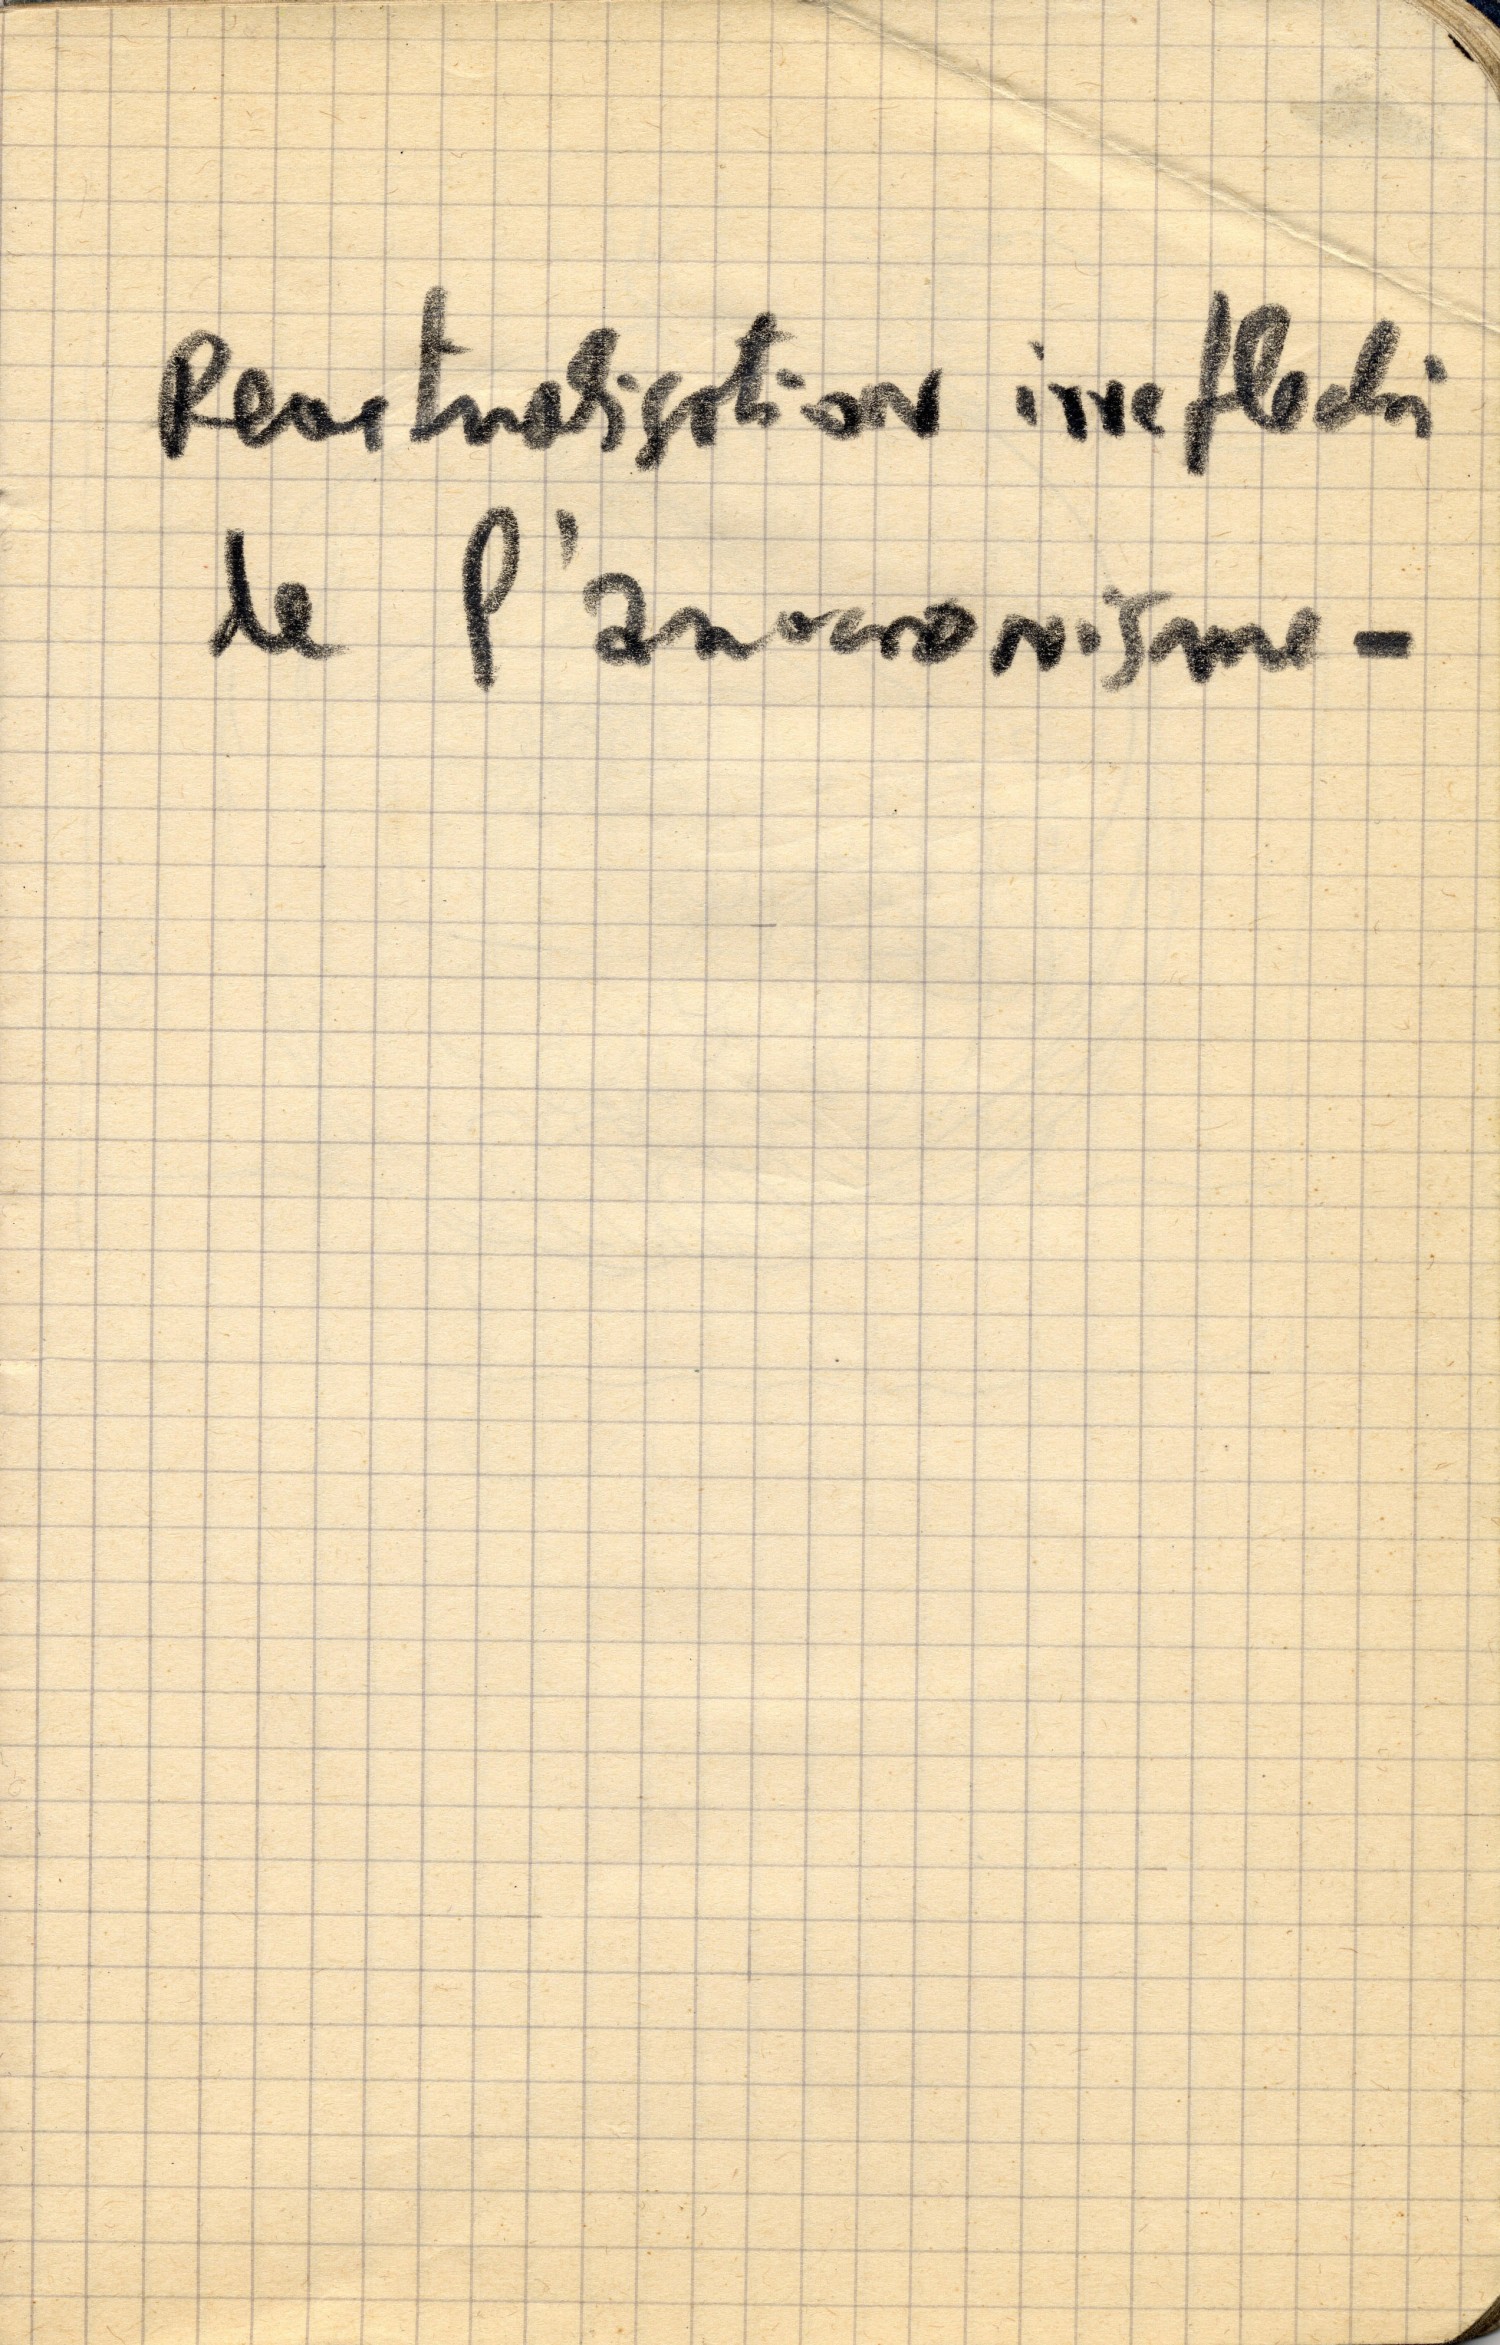 Reactualisation irreflechi
de l'anacronisme -